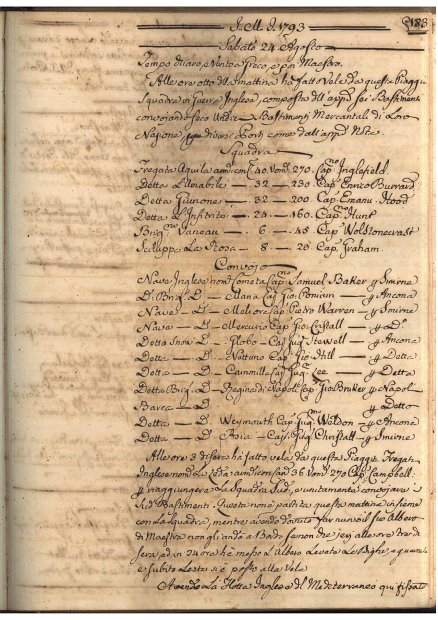 183
S. M. J. 1793
Sabato 24 Agosto
Tempo chiaro, e Vento Greco, e poi Maestro.
Alle ore otto di Smattina ha fatto Vela da questa Piaggia
Squadra in Guerra Inglese, composta dell'app.o sei Bastimenti
convojando seco Undici Bastimenti Mercantili di Loro
Nazione, diversi Porti come dall'app.a Nota
Squadra
Fregata Aquila 40 Nom. 270. Cap.no Inglefield.
Detta L'Amabile — 32 — 230 Cap. Enrico Burrard
Detta Giunone — 32 — 200 Cap. Emanu. Hood
Detta L'Anfitrite — 24 — 160. Cap. Hunt
Brig.no Vaneau — 6 — 45. Cap. Woldstonecrast
Scaluppa La Rosa — 8 — 28. Cap. Graham.
Convojo
Nave Inglese nom. Cometa Cap.no Samuel Baker p Smirne
D. Brig. D. — Maria Cap. Gio. — p Ancona
Nave — D. — Cap. Pietro Warren — p Smirne
Nave — D. — Mercurio Cap. Gio. Cristall — p D.
Detta Snow — D. — Globo — Cap. Stowell — p Ancona
Dette — D. — Nettuno Cap. Gio. Hill — p Detta
Dette — D. — Cammilla Cap. Gug. Lee — p Detta
Detta Brig. D. — Regina di Napoli Cap. Gio. Broker p Napol
Barca — D. — p Detto
Detta — D. Weymouth Cap. Gug. Weldon — p Ancona
Detta — D. — Cap. Gug. Christall — p Smirne
Alle ore 3 di sera ha fatto vela da questa Piaggia Fregat.
Inglese nom. La Leda 36 Nom. 270 Cap. Campbell
p raggiungere La Squadra Sud. e unitamente convojare i
Sud. Bastimenti. Questa non partita questa matina insieme
con la Squadra, mentre avendo dovuto far nuovo il suo Albero
di Maestra non gli andò a Bordo se non che jeri alle ore tre di
sera, ed in 24 ore hà messo L'Albero
e subito Lesto si è posto alla Vela
Avendo La Flotta Inglese del Mediterraneo qui fissato